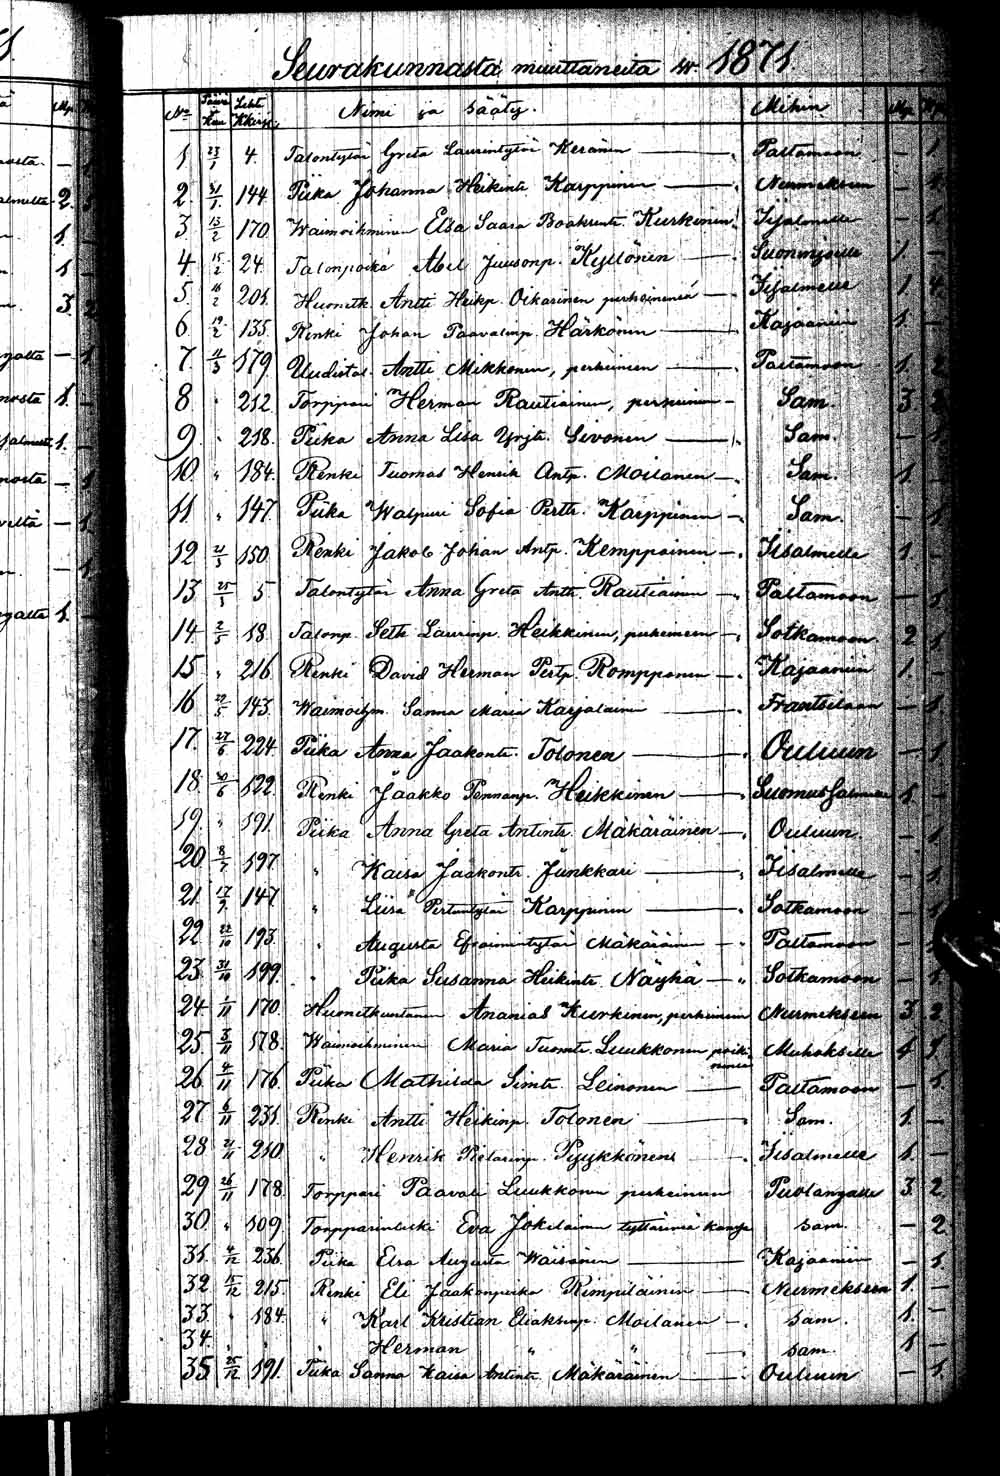 Seurakunnasta muuttaneita w. 1871
No Päivä Kuu Lehti Kkirja Nimi ja Sääty. Mihin Mp. Np.
1 23/1 4. Talontytär Greta Laurintytär Keränen — Paltamoon — 1.
2. 31/1. 144 Piika Johanna Heikintr Karppinen — Nurmekseen — 1.
3 13/2 170. Waimoihminen Elsa Saara Kurkinen Iisalmelle — 1.
4 15/2 24. Talonpoika Abel Juusonp. Kyllönen — 1. —
5. 16/2 201. Huonetk. Antti Heikp. Oikarinen perheinensä — Iisalmelle 1. 4.
6 19/2 135. Renki Johan Paavalinp. Härkönen — Kajaaniin 1. —
7 11/3 179 Uudistal. Antti Mikkonen, perheineen — Paltamoon 1. 2
8 " 212 Torppari Herman Rautiainen, perheineen — Sam. 3. 2
9. " 218. Piika Anna Lisa Yrjtr. Sivonen — Sam. — 1.
10. " 184. Renki Tuomas Henrik Antp. Moilanen — Sam. 1. —
11. " 147. Piika Walpuri Sofia Perttr. Karppinen — Sam. — 1.
12 21/3 150. Renki Jakob Johan Antp. Kemppainen — Iisalmelle 1 —
13 25/3 5 Talontytär Anna Greta Anttr. Rautiainen — Paltamoon — 1.
14. 2/5 18. Talonp. Seth Laurinp. Heikkinen, perheineen — Sotkamoon 2 1.
15 " 216 Renki David Herman Pertp. Romppanen — Kajaaniin 1. —
16 29/5 143. Waimoihm. Sanna Maria Karjalainen — Frantsilaan — 1.
17. 27/6 224. Piika Anna Jaakontr. Tolonen — Ouluun — 1.
18. 30/6 122. Renki Jaakko Heikkinen — Suomussalmelle 1. —
19. " 191. Piika Anna Greta Antintr. Mäkäräinen — Ouluun. — 1.
20 8/7 197 " Kaisa Jaakontr. Junkkari — Iisalmelle — 1.
21. 17/9. 147 " Liisa Pertuntytär Karppinen — Sotkamoon — 1.
22. 22/10 193. " Augusta Efraimintytär Mäkäräinen — Paltamoon
23. 31/10 199. " Piika Susanna Heikintr. Näykä — Sotkamoon — 1.
24. 1/11 170. Huonetkuntanen Ananias Kurkinen, perheineen Nurmekseen 3. 2
25. 3/11 178. Waimoihminen Maria Tuomtr. Luukkonen Muhokselle
26. 4/11 176. Piika Mathilda Simtr. Leinonen — Paltamoon — 1.
27 6/11 231. Renki Antti Heikinp. Tolonen — Sam. 1. —
28 21/11 210 " Henrik Pietarinp. Pyykkönen — Iisalmelle 1. —
29 26/11 178. Torppari Paavali Luukkonen perheineen Puolangalle 3. 2
30. " 109. Torpparinleski Eva Jokelainen tyttärensä kanssa sam. — 2.
31. 4/12 236. Piika Elsa Augusta Wäisänen — Kajaaniin — 1.
32 15/12 215. Renki Eli Jaakonpoika Kimpiläinen — Nurmekseen 1. —
33. " 184. " Karl Kristian Eliaksenp. Moilanen — sam. 1. —
34. " " " Herman " " sam. 1 —
35 25/12 191. Piika Sanna Kaisa Antintr. Mäkäräinen — Ouluun — 1.